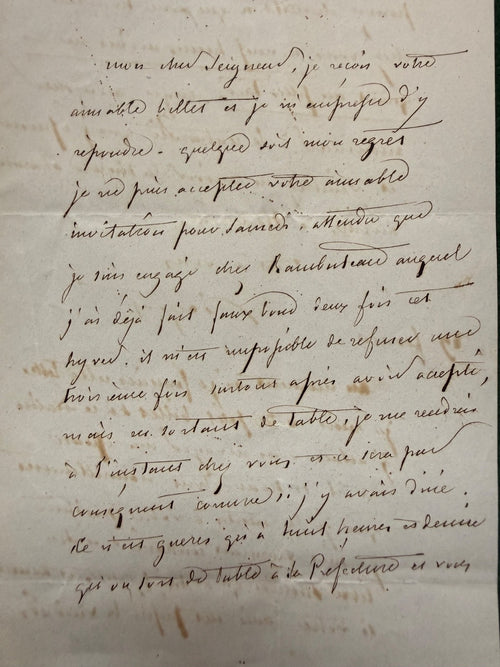 mon cher Seigneur, je reçois votre
aimable billet et je m'empresse d'y
répondre. quelque soit mon regret
je ne puis accepter votre aimable
invitation pour Samedi, attendu que
je suis engagé chez Rambuteau auquel
j'ai déjà fait faux bond deux fois cet
hyver. il m'est impossible de refuser une
troisième fois surtout après avoir accepté,
mais en sortant de table, je me rendrai
à l'instant chez vous et ce sera par
conséquent comme si j'y avais diné.
Ce n'est gueres qu'à huit heures et demie
qu'on sort de table à la Préfecture et vous